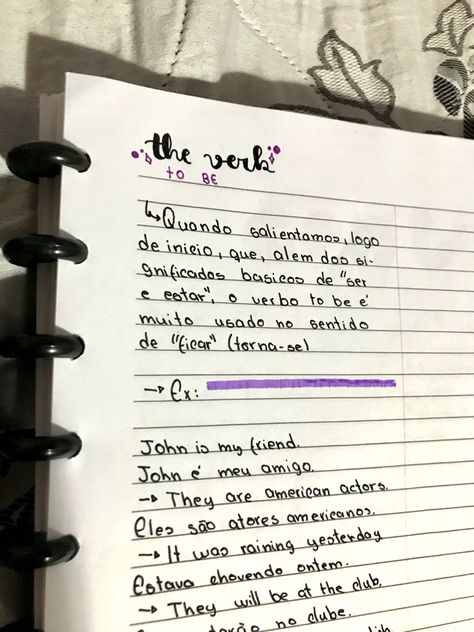 the verb
TO BE
↳Quando salientamos, logo
de inicio, que, alem dos si-
gnificados basicos de "ser
e estar", o verbo to be é
muito usado no sentido
de "ficar" (torna-se)
→ Ex:
John is my friend.
John é meu amigo.
→ They are american actors.
Eles são atores americanos.
→ It was raining yesterday
Estava chovendo ontem.
→ They will be at the club.
no clube.